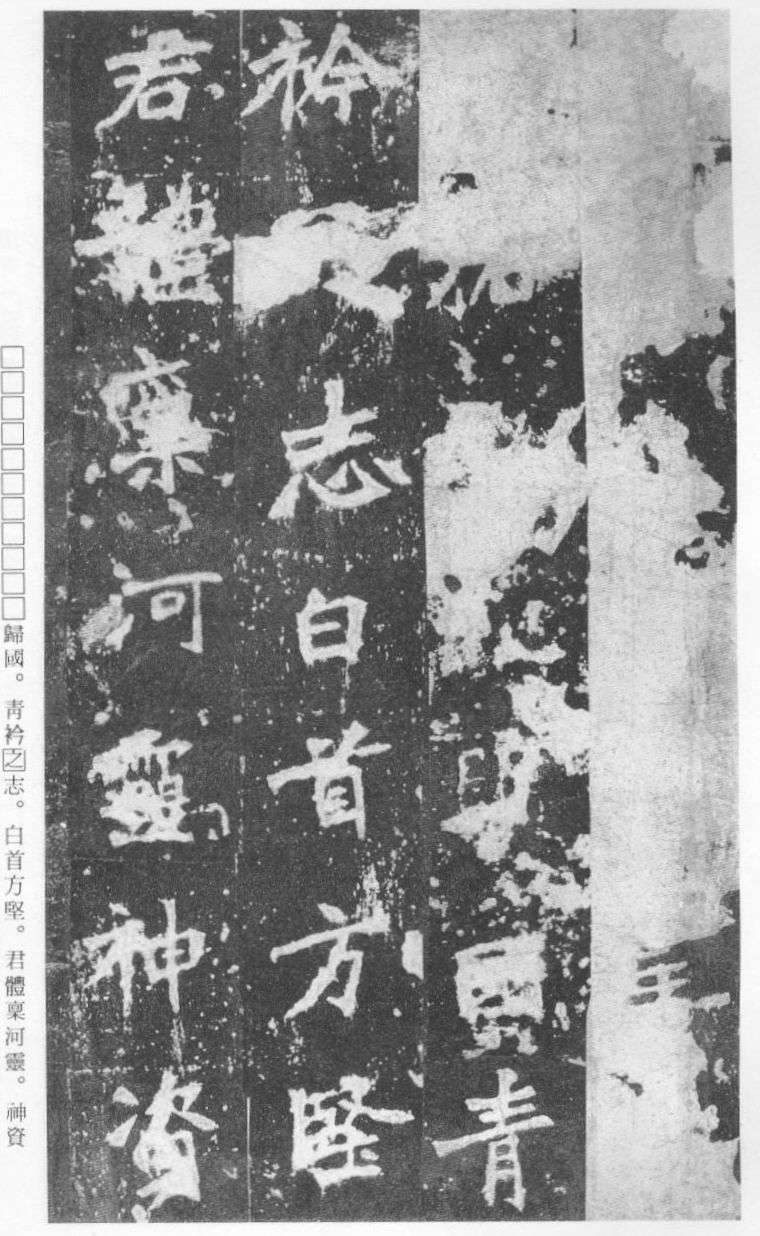 國青
衿志白首方堅
君體稟河靈神資
□□□□□□□□□□□歸國。青衿之志。白首方堅。君體稟河靈。神資